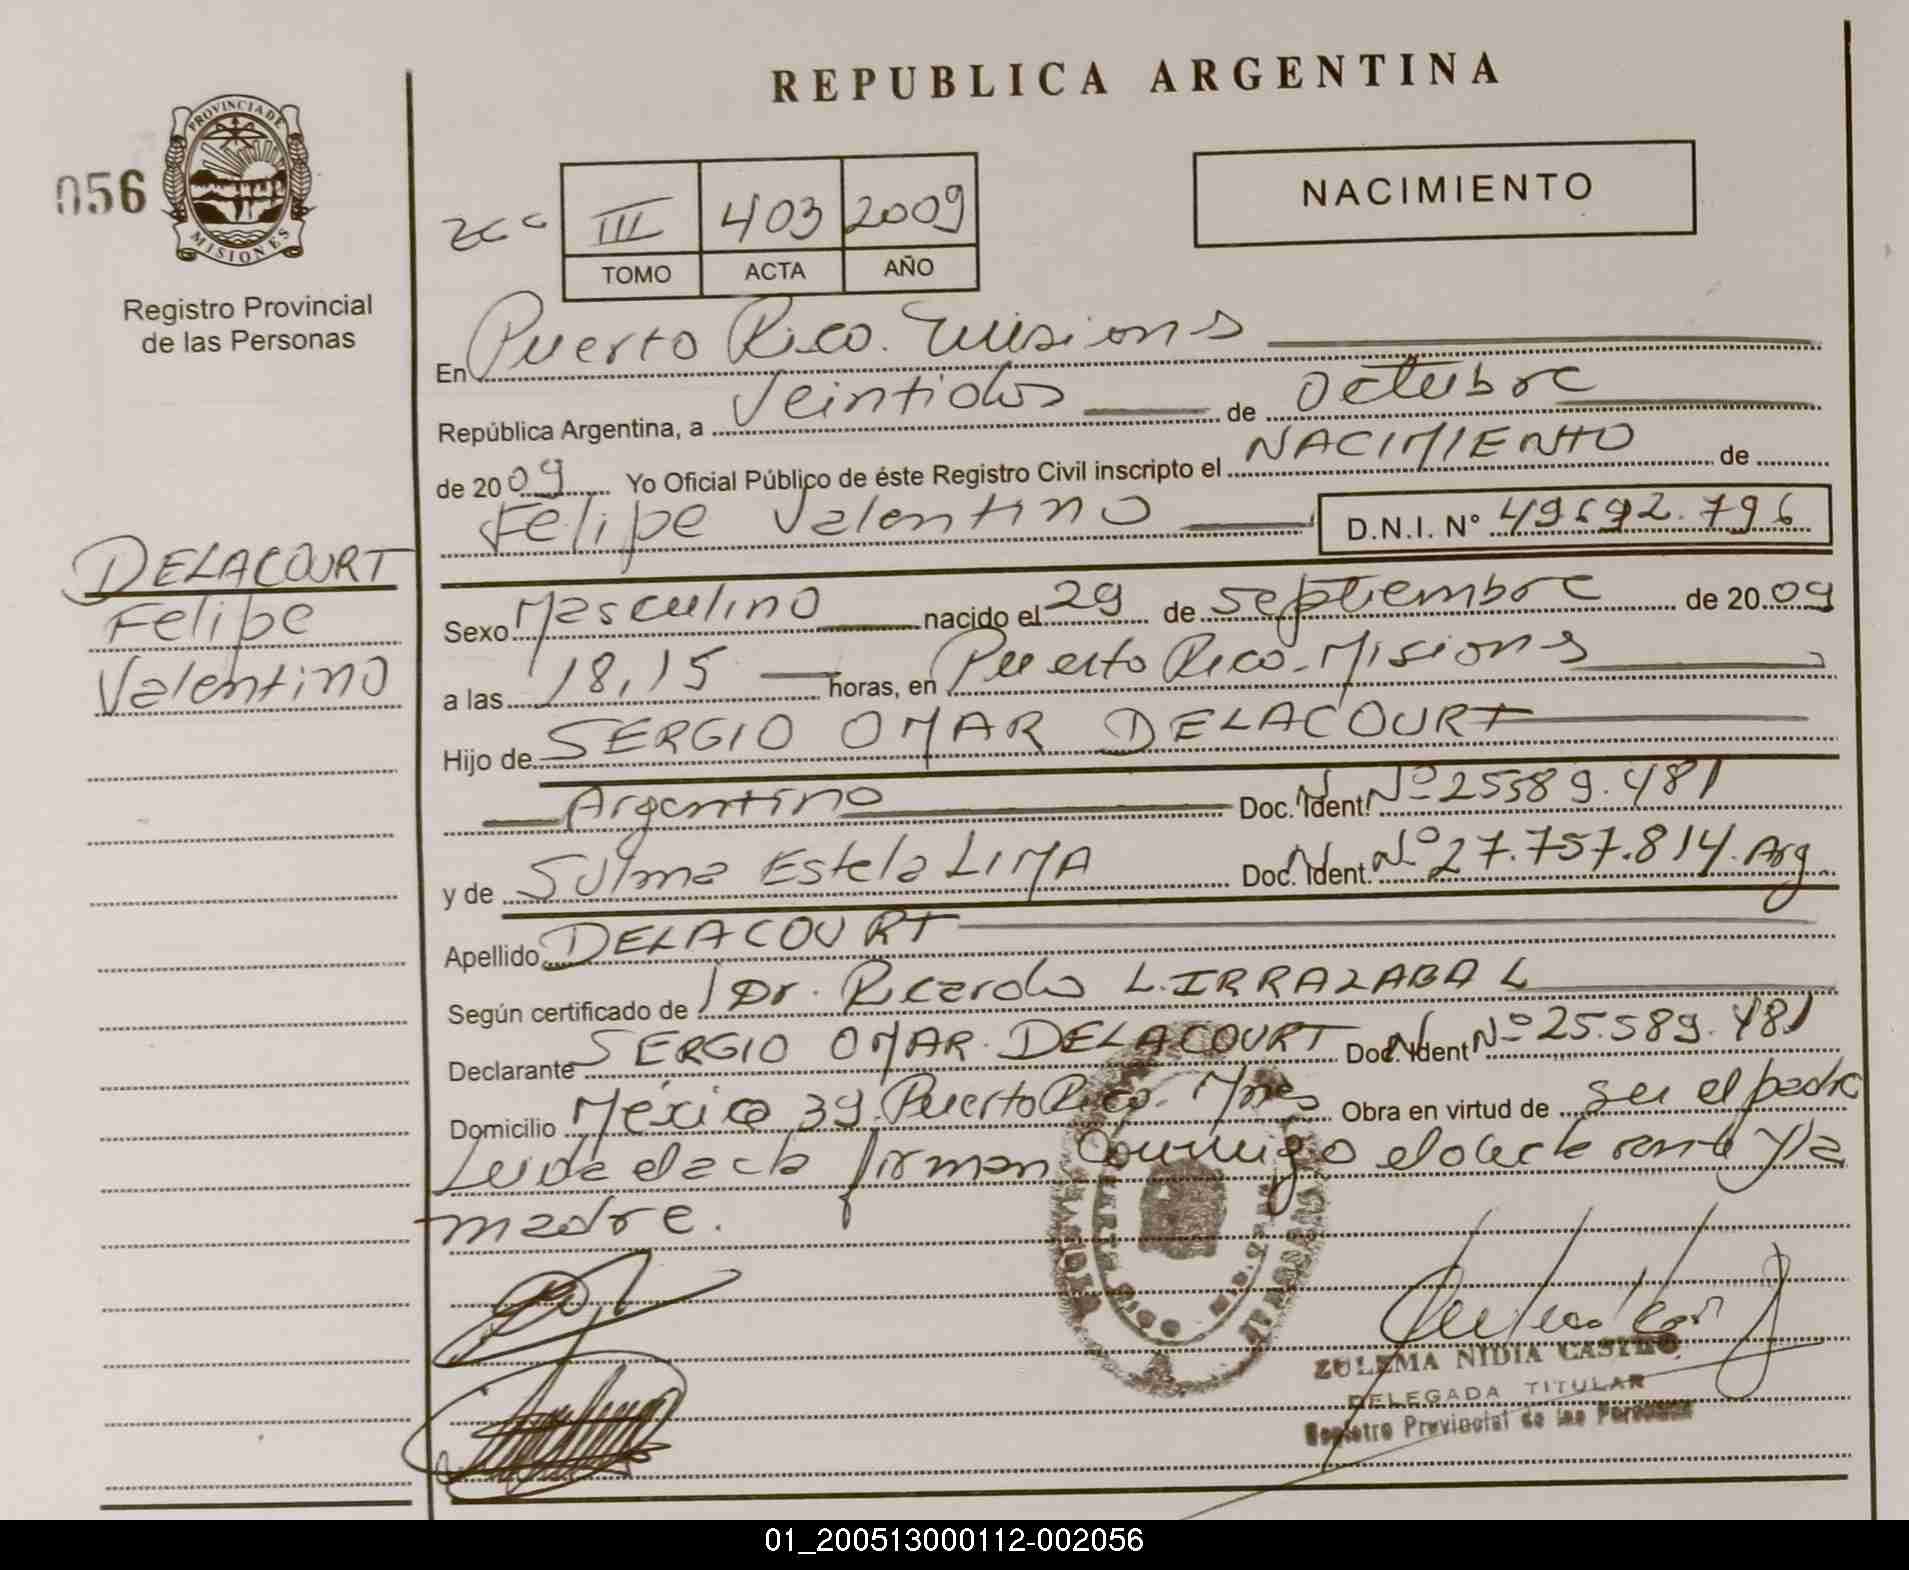 REPUBLICA ARGENTINA
PROVINCIA DE
MISIONES
056
Registro Provincial
de las Personas
III 403 2009
TOMO ACTA AÑO
NACIMIENTO
En Puerto Rico. Misiones
República Argentina, a Veintidos de octubre
de 2009 Yo Oficial Público de éste Registro Civil inscripto el NACIMIENTO de
Felipe Valentino D.N.I. N° 49.692.796
DELACOURT
Felipe
Valentino
Sexo Masculino nacido el 29 de septiembre de 2009
a las 18,15 horas, en Puerto Rico. Misiones
Hijo de SERGIO OMAR DELACOURT
Argentino Doc. Ident. Nº 25589.481
y de Sulma Estela LIMA Doc. Ident. Nº 27.757.814. Arg
Apellido DELACOURT
Según certificado de Dr. Ricardo L. IRRAZABAL
Declarante SERGIO OMAR. DELACOURT Doc. Ident Nº 25.589.481
Domicilio México 39. Puerto Rico. Mnes Obra en virtud de ser el padre
Leida el acta firman conmigo el declarante y la
madre.
ZULEMA NIDIA CASTRO
DELEGADA TITULAR
Registro Provincial de las Personas
01_200513000112-002056